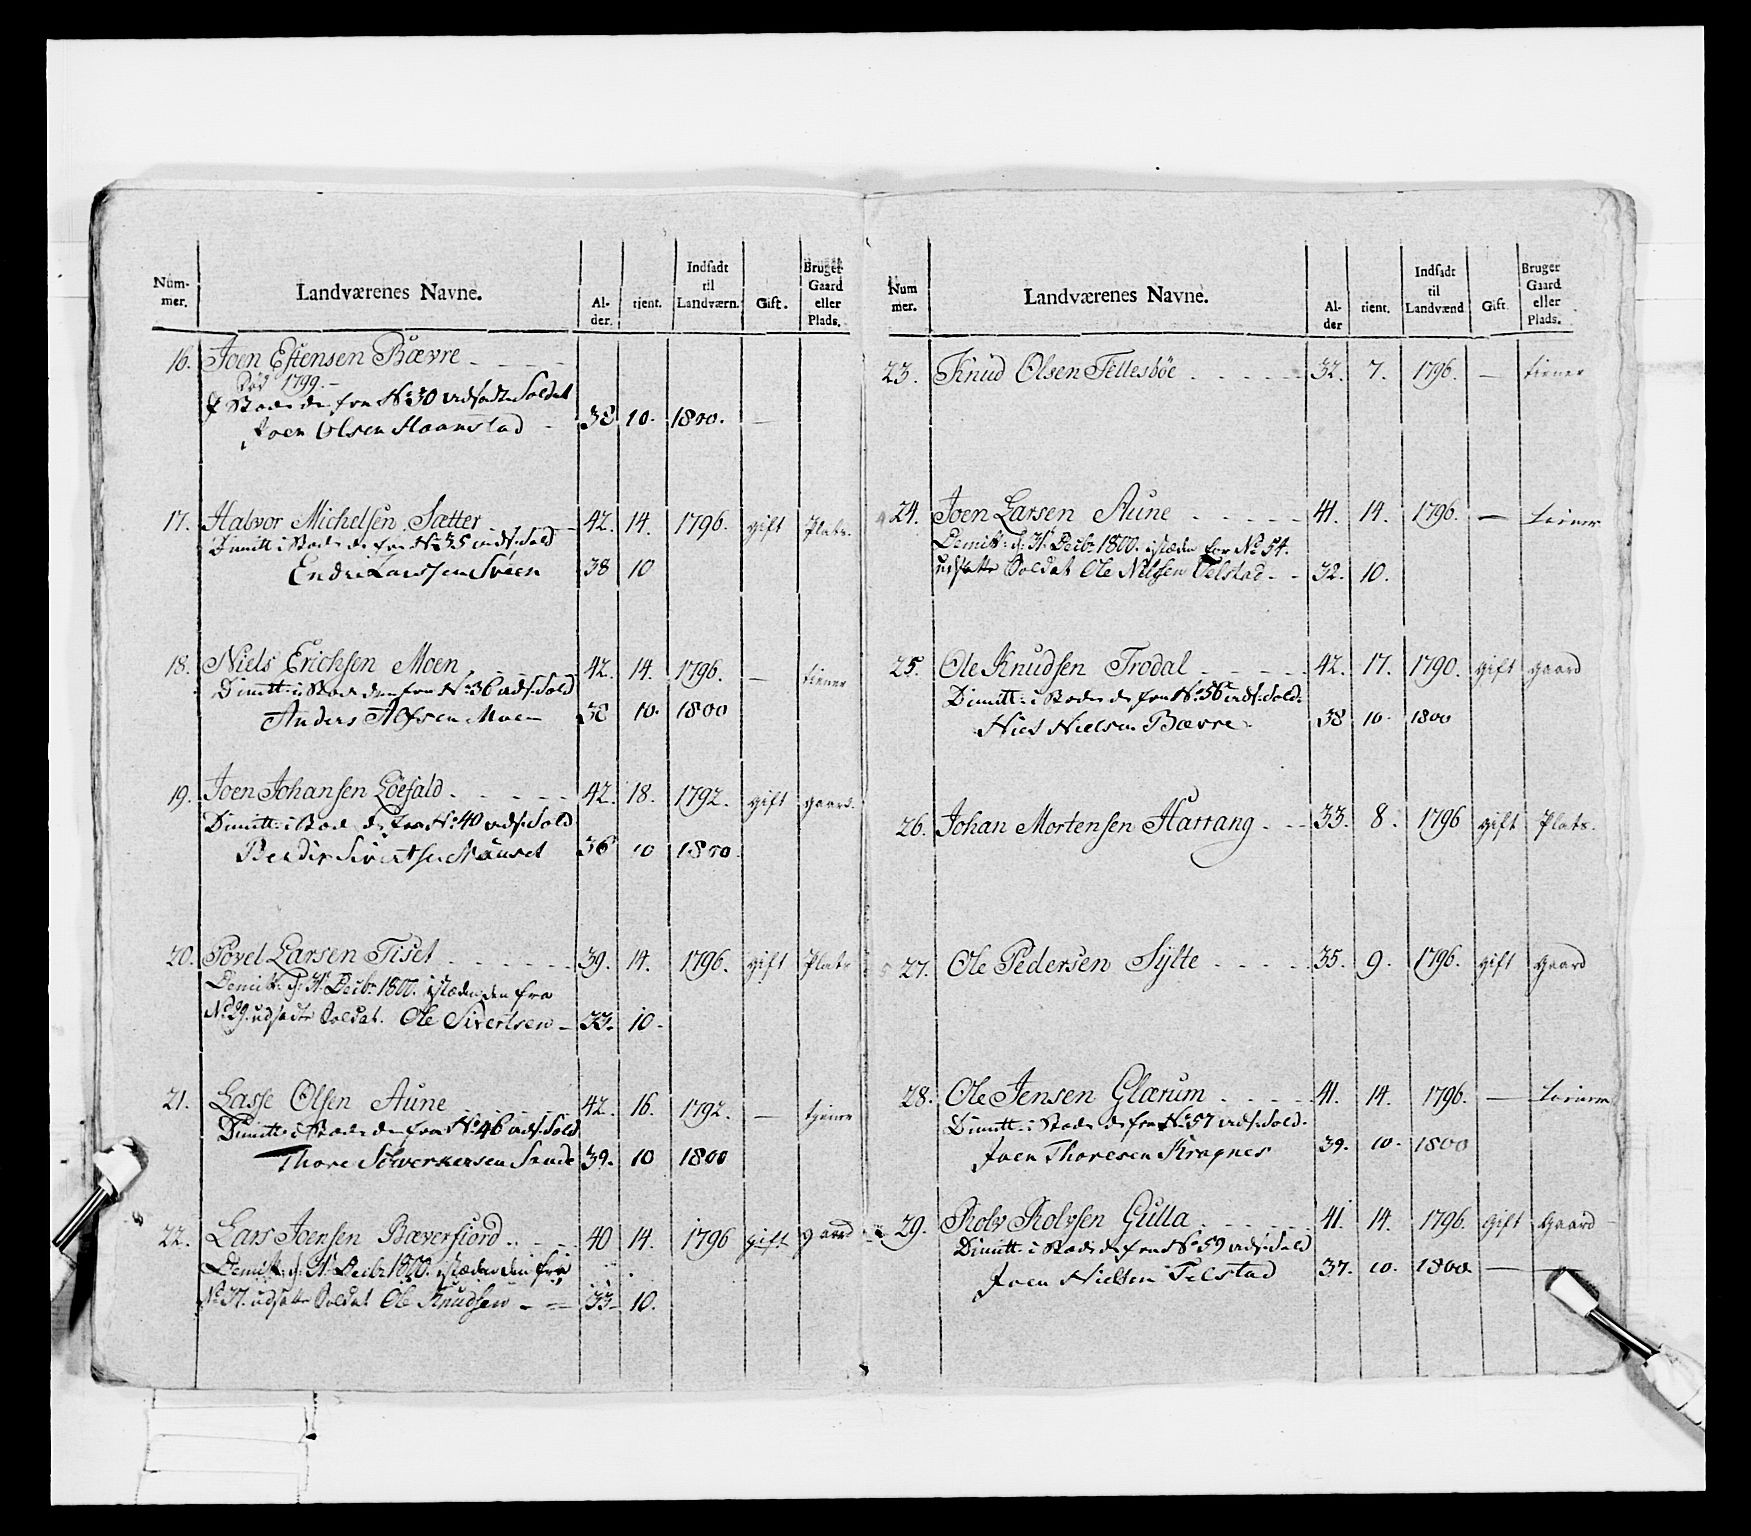 Num-mer. Landværenes Navne. Al-der. tient. Indsadt til Landværn. Gift. Bruger Gaard eller Plads.
16. Joen Estensen Bævre
Död 1799.
I Stæde de fra No 30 udsadte Soldat
Joen Olsen 38 10. 1800. —
17. Halvor Michelsen Sætter 42. 14. 1796. gift Plads.
Dimitt: i Stæde de fra No 35 uds: Sold
Endre Larssen Svéen 38 10
18. Niels Erichsen Moen 42. 14. 1796. — tiener
Dimitt: i Stæde den fra No 36 uds: Sold
Anders Moen 38 10. 1800
19. Joen Johansen Löefald 42. 18. 1792. gift gaard.
Dimitt: i Stæde de fra No 40 uds: Sold
Sivertsen 36 10 1800.
20. Povel Larsen Tiset 39. 14. 1796. gift Plads
Demitt: d: 31 Decbr 1800. istæden den fra
No 29. udsadte Soldat. Ole Sivertsen 33. 10.
21. Lasse Olsen Aune 42. 16. 1792. — tjener
Dimitt: i Stæde de fra No 46 uds: Sold
Thore Sande 39. 10 1800
22. Lars Joensen Bæverfiord 40 14. 1796 gift gaard
Demitt: d: 31 Decbr 1800. istæden den fra
No 37. udsatte Soldat Ole Knudsen 33 10.
Num mer. Landværenes Navne. Al-der tient. Indsadt til Landvænd Gift Bruger Gaard eller Plads.
23. Knud Olsen Tellesböe 32. 7. 1796. — tiener
24. Joen Larsen Aune 41. 14. 1796. — tiener
Demitt: d: 31 Decbr 1800. istæden for No 54.
udsatte Soldat Ole Nilssen Telstad 32. 10.
25. Ole Knudsen Trodal 42. 17. 1790. gift gaard
Dimitt: i Stæde de fra No 56 uds: Sold.
Niels Nielsen Bævre 38 10. 1800
26. Johan Mortensen Harrang 33. 8. 1796 gift Plads.
27. Ole Pedersen Sylte 35. 9. 1796. gift gaard
28. Ole Jensen Glærum 41. 14. 1796. — tiener
Dimitt: i Stæde de fra No 57 uds: Sold.
Joen Thoresen Kragnes 39. 10. 1800
29. Rolv Rolvsen Gulla 41. 14. 1796. gift gaard
Dimitt: i Stæde de fra No 59 uds: Sold
Joen Nielsen Telstad 37. 10. 1800 —